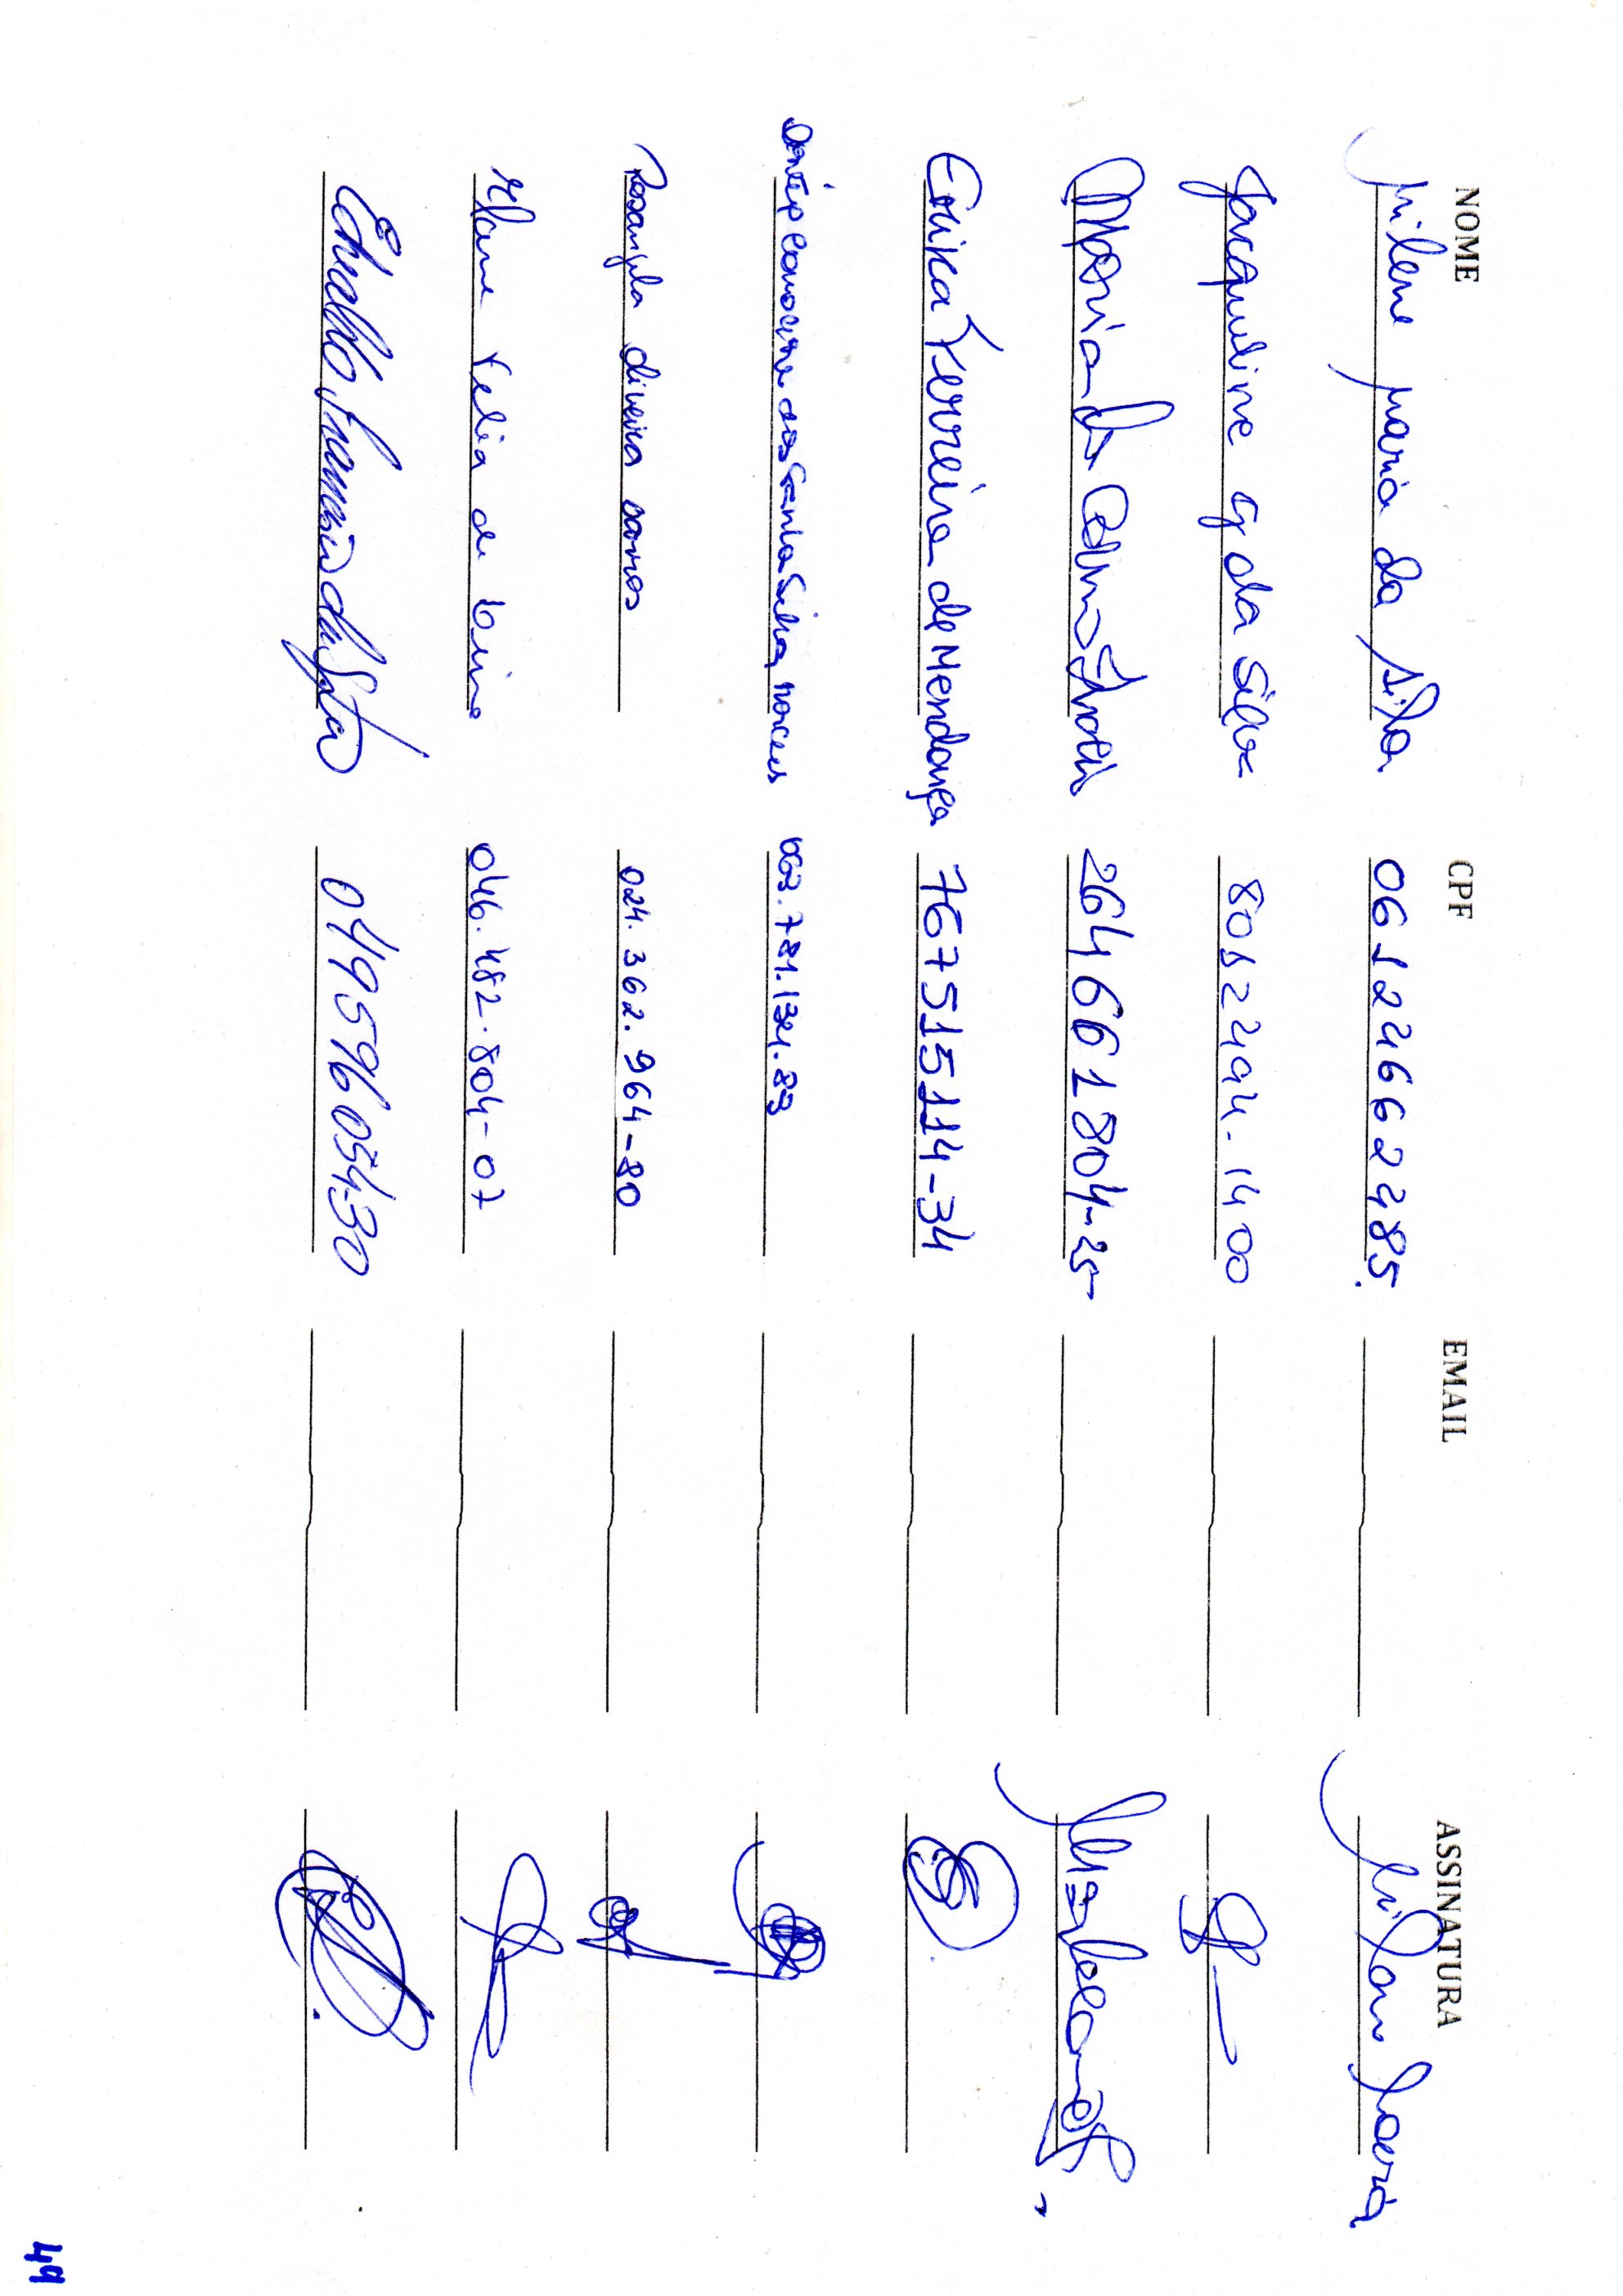 NOME CPF EMAIL ASSINATURA
Milene maria da Silva 061224662485. Milene Maria
Jacqueline G da Silva 80122494-1400
Maria do Carmo 264661804-25
Erika Ferreira de Mendonça 767515114-34
da Santa Silva 063.781.134.83
Rosangela oliveira barros 024.362.964-80
Elane Felia de Lima 046.482.804-07
Ednaldo Francisco da Silva 049596054-30
49